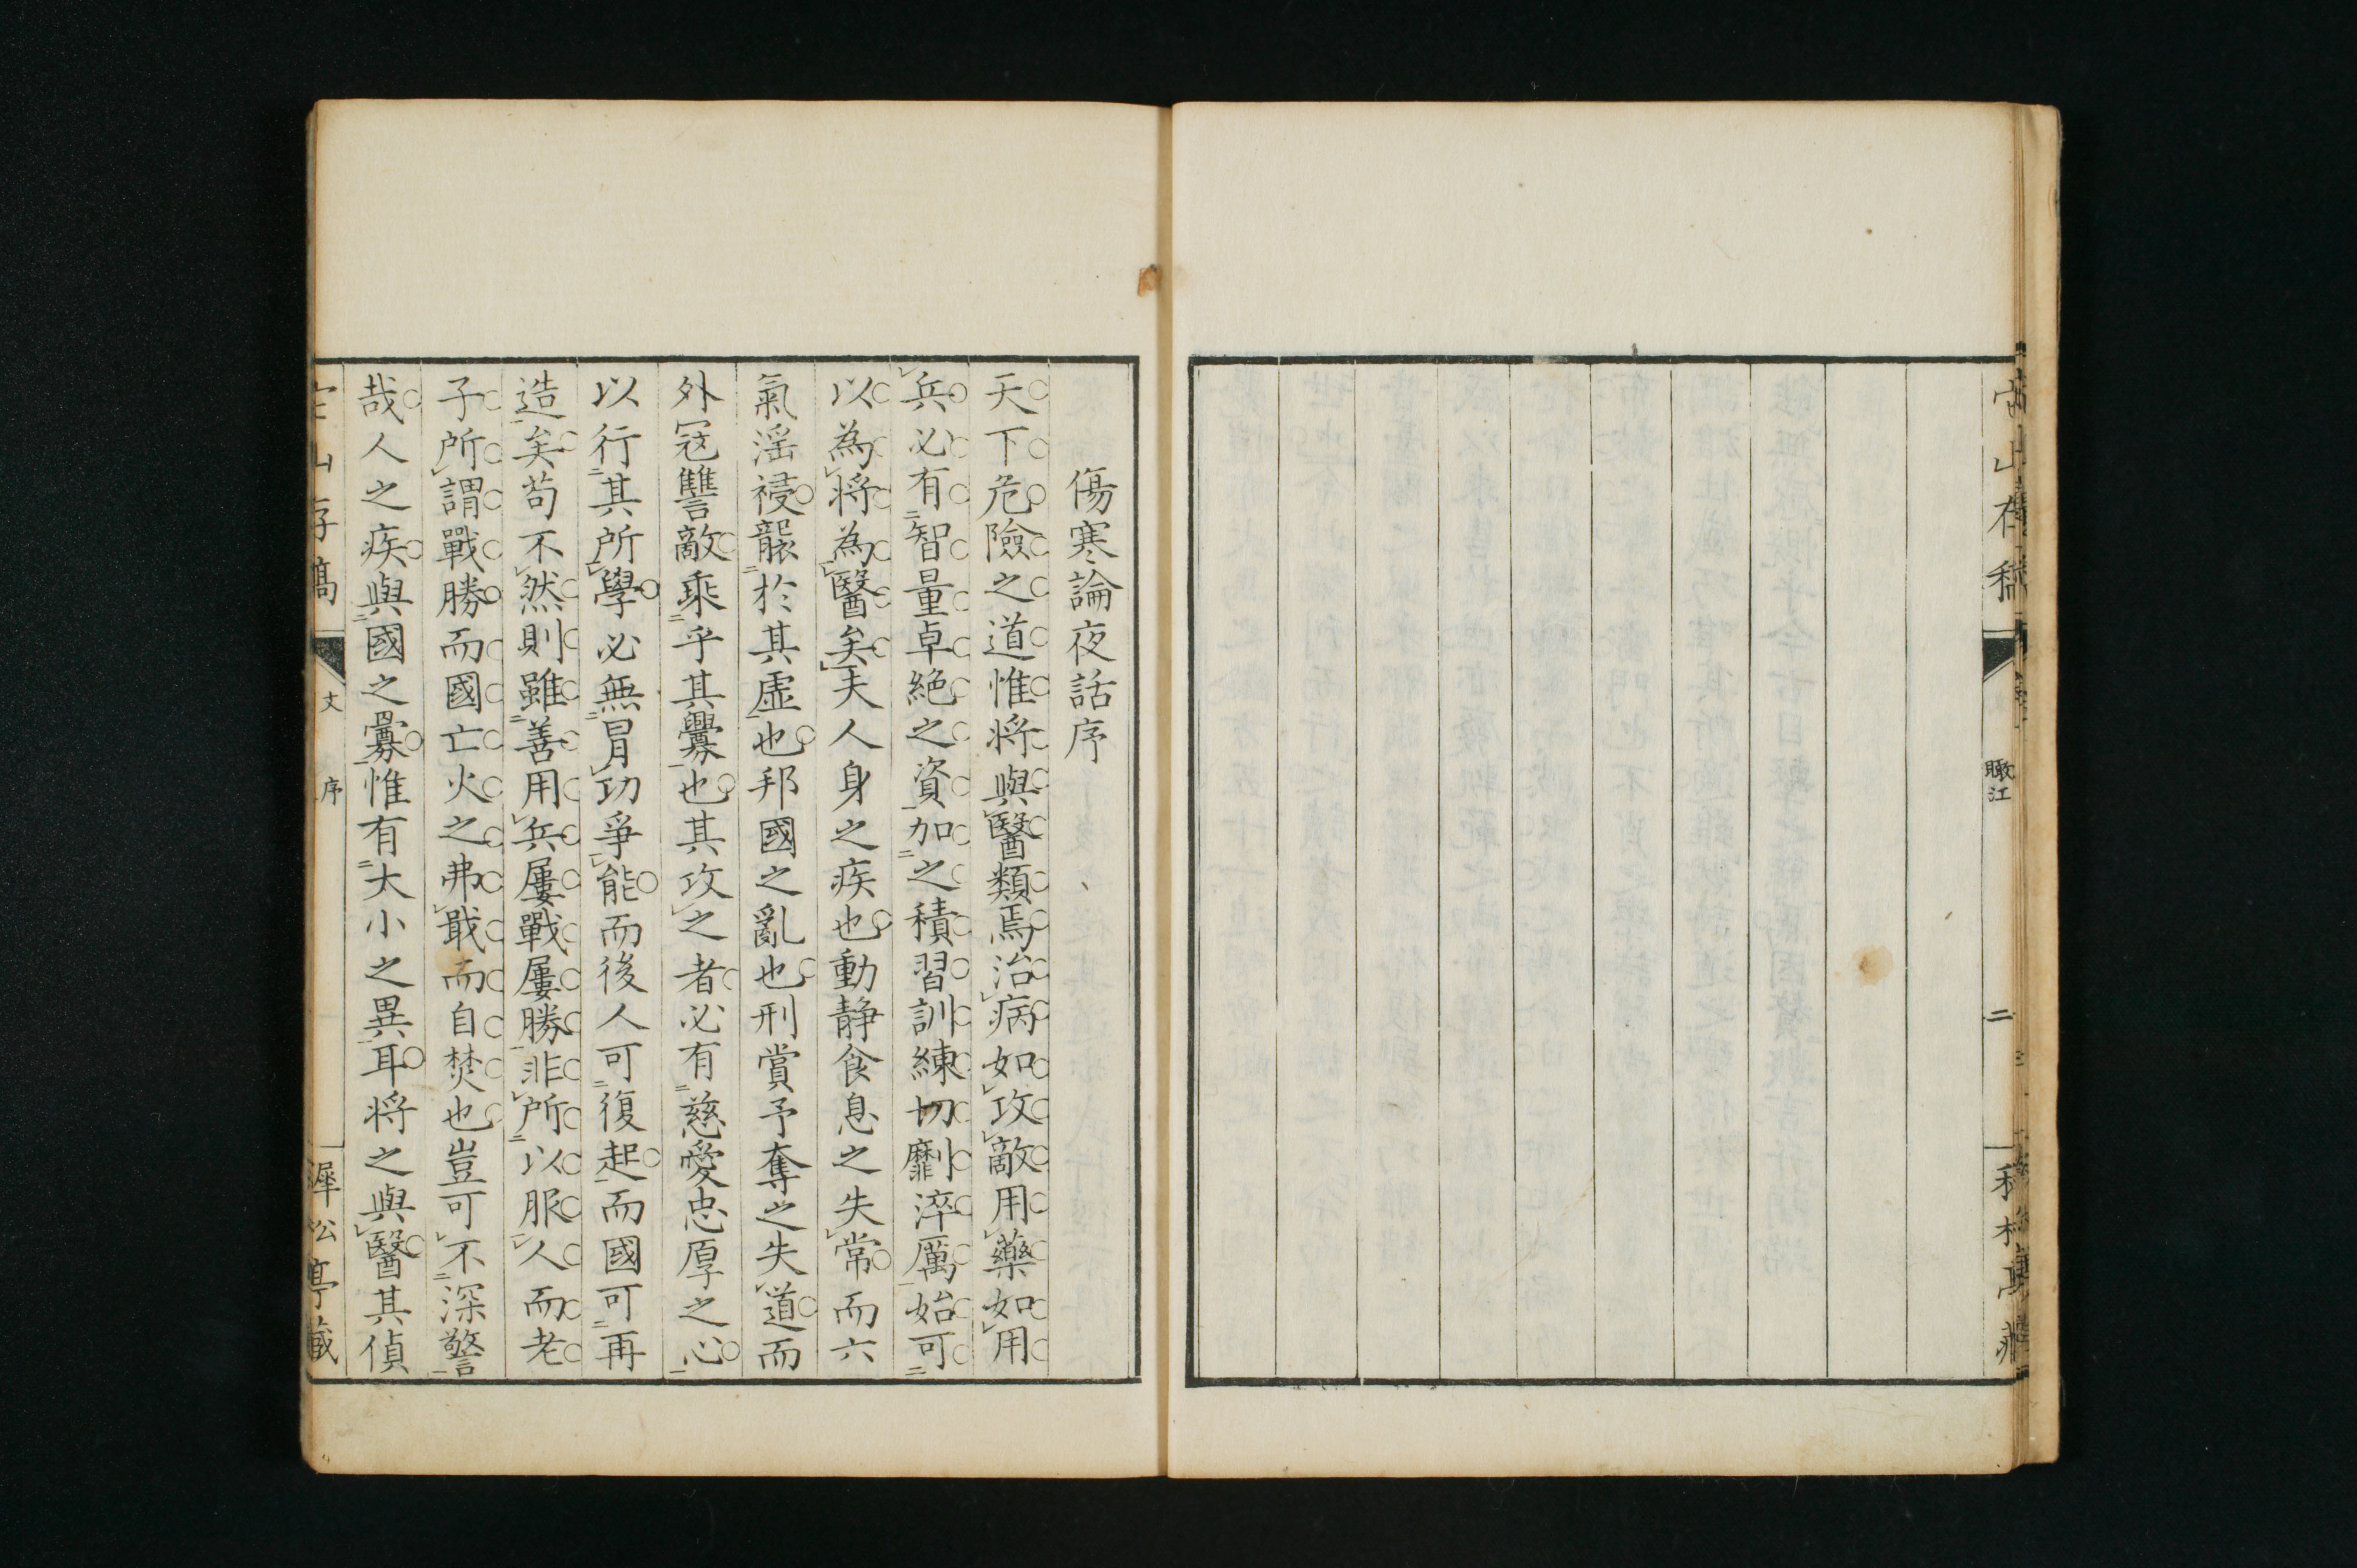 瞰江
二
傷寒論夜話序
天下危險之道惟將與醫類焉治病如攻敵用藥如用
兵必有智量卓絶之資加之積習訓練切劘淬厲始可
以為將為醫矣夫人身之疾也動静食息之失常而六
氣滛祲襲於其虛也邦國之亂也刑賞予奪之失道而
外冦讐敵乘乎其釁也其攻之者必有慈愛忠厚之心
以行其所學必無冒功爭能而後人可復起而國可再
造矣苟不然則雖善用兵屢戰屢勝非所以服人而老
子所謂戰勝而國亡火之弗戢而自焚也豈可不深警
哉人之疾與國之釁惟有大小之異耳將之與醫其偵
山存稿
文
序
犀松亭藏